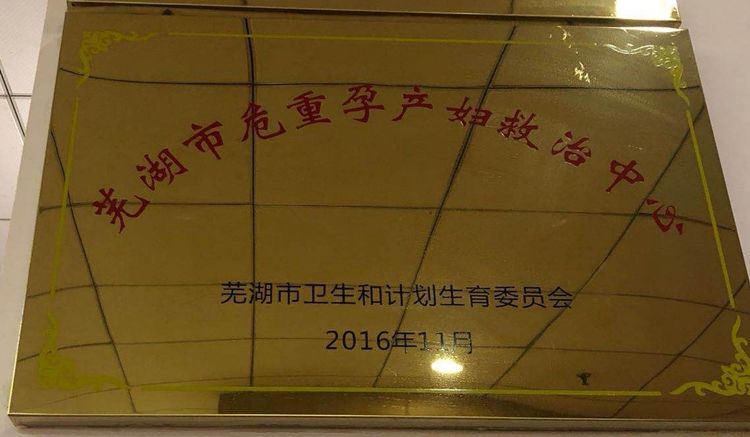 芜湖市危重孕产妇救治中心
芜湖市卫生和计划生育委员会
2016年11月